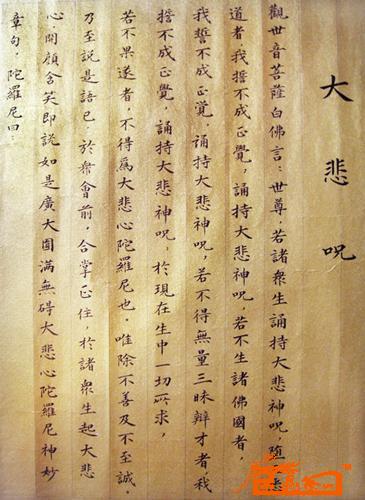 大悲咒
觀世音菩薩白佛言：世尊，若諸衆生誦持大悲神咒，墮
道者，我誓不成正覺，誦持大悲神咒，若不生諸佛國者，
我誓不成正覺，誦持大悲神咒，若不得無量三昧辯才者，我
誓不成正覺，誦持大悲神咒，於現在生中一切所求，
若不果遂者，不得爲大悲心陀羅尼也，唯除不善及不至誠。
乃至說是語已，於衆會前，合掌正住，於諸衆生起大悲
心，開顏含笑即說如是廣大圓滿無碍大悲心陀羅尼神妙
章句，陀羅尼曰：